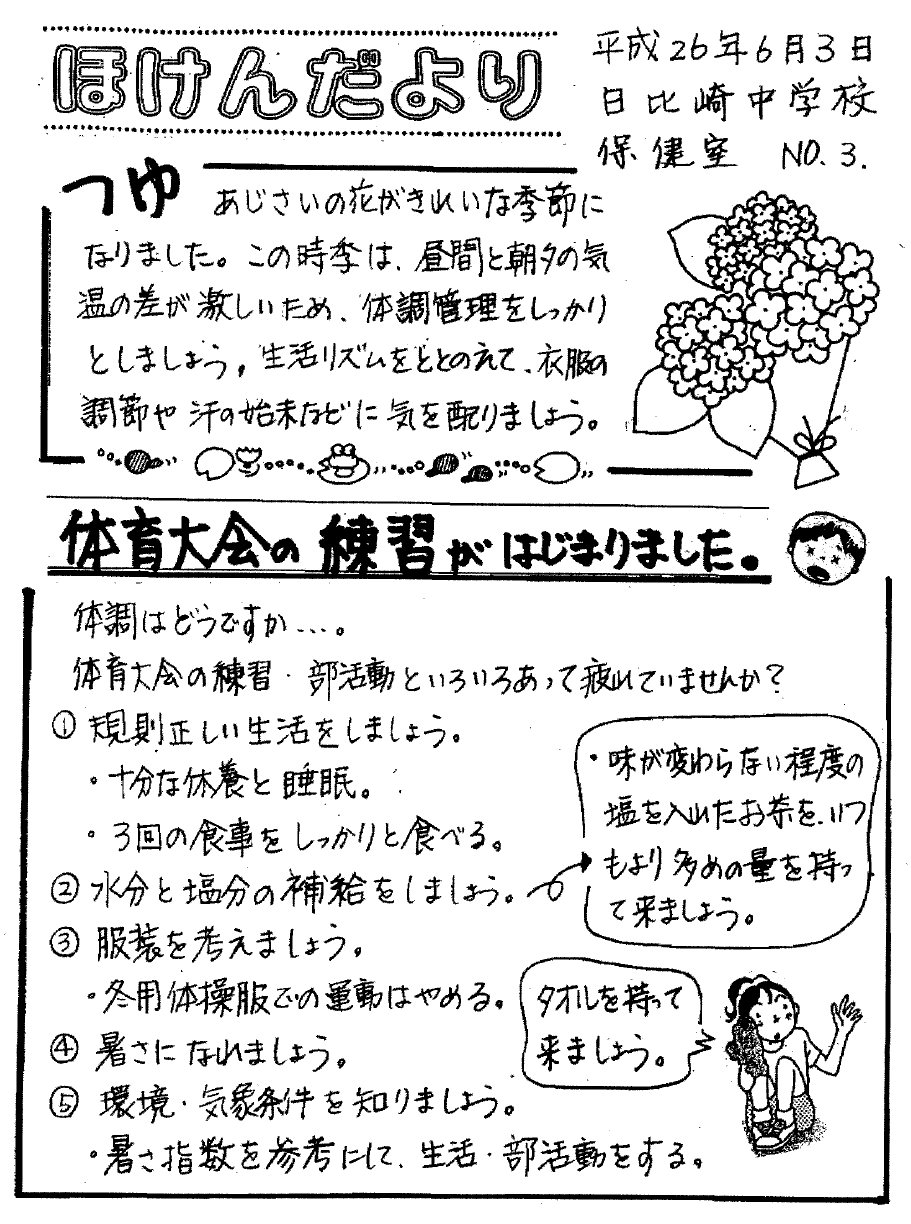 ほけんだより
平成26年6月3日
日比崎中学校
保健室 NO.3.
つゆ
あじさいの花がきれいな季節に
なりました。この時季は、昼間と朝夕の気
温の差が激しいため、体調管理をしっかり
としましょう。生活リズムをととのえて、衣服の
調節や汗の始末などに気を配りましょう。
体育大会の練習がはじまりました。
体調はどうですか…。
体育大会の練習・部活動といろいろあって疲れていませんか?
① 規則正しい生活をしましょう。
・十分な休養と睡眠。
・3回の食事をしっかりと食べる。
② 水分と塩分の補給をしましょう。
・味が変わらない程度の
塩を入れたお茶を、いつ
もより多めの量を持っ
て来ましょう。
③ 服装を考えましょう。
・冬用体操服での運動はやめる。
タオルを持って
来ましょう。
④ 暑さになれましょう。
⑤ 環境・気象条件を知りましょう。
・暑さ指数を参考にして、生活・部活動をする。